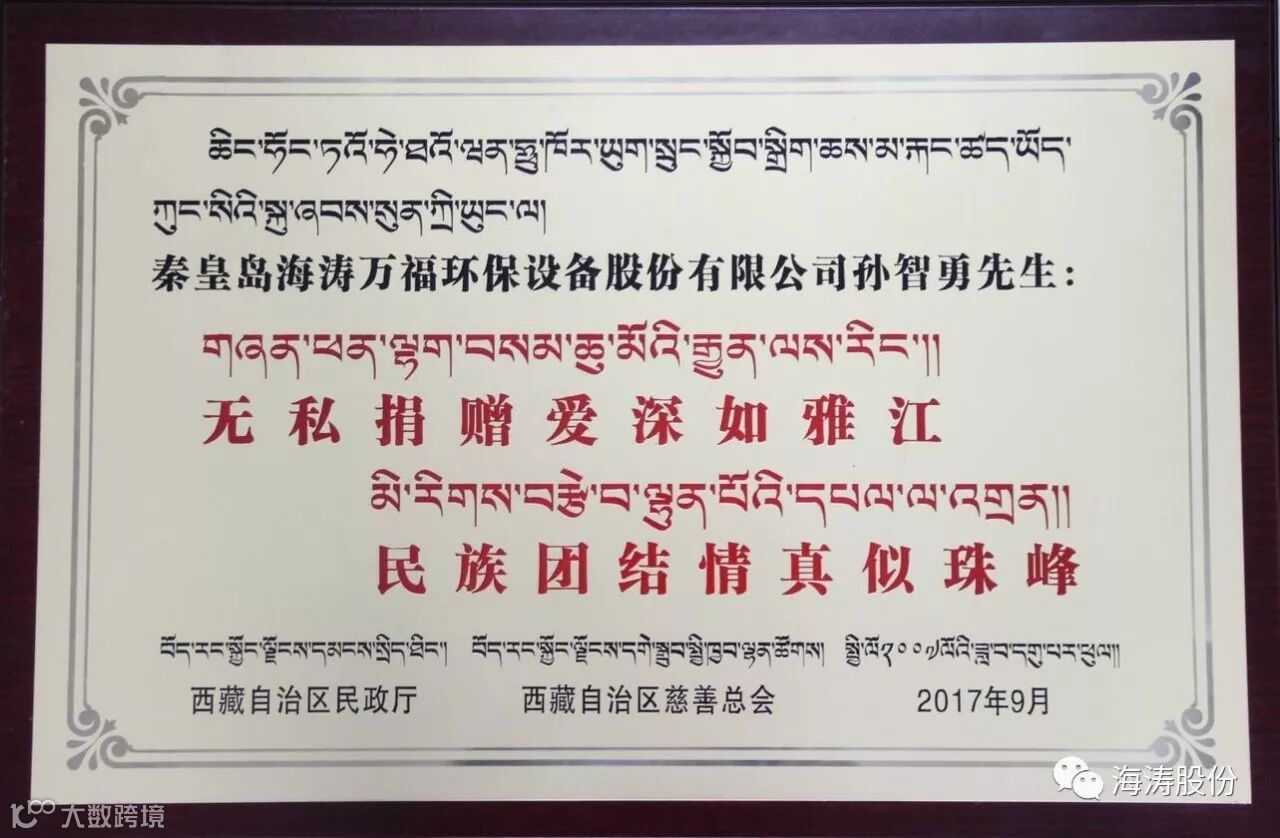 ཆིང་ཧོང་ཏའོ་ཧེ་ཐའོ་ཝན་ཧྥུ་ཁོར་ཡུག་སྲུང་སྐྱོབ་སྒྲིག་ཆས་མ་རྐང་ཚད་ཡོད་
ཀུང་སིའི་སྐུ་ཞབས་སུན་ཀྲི་ཡུང་ལ།
秦皇岛海涛万福环保设备股份有限公司孙智勇先生：
གཞན་ཕན་ལྷག་བསམ་ཆུ་མོའི་རྒྱུན་ལས་རིང་།།
无私捐赠爱深如雅江
མི་རིགས་བརྩེ་བ་ལྷུན་པོའི་དཔལ་ལ་འགྲན།།
民族团结情真似珠峰
བོད་རང་སྐྱོང་ལྗོངས་དམངས་སྲིད་ཐིང་། བོད་རང་སྐྱོང་ལྗོངས་དགེ་སྒྲུབ་སྤྱི་ཁྱབ་ལྷན་ཚོགས། སྤྱི་ལོ༢༠༠༧ལོའི་ཟླ་བ་དགུ་པར་ཕུལ།།
西藏自治区民政厅 西藏自治区慈善总会 2017年9月
海涛股份
大数跨境